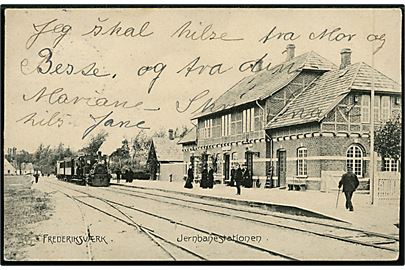 Jeg skal hilse fra Mor og
Besse, og fra din
Mariane
hils Jane
FREDERIKSVÆRK. Jernbanestationen.